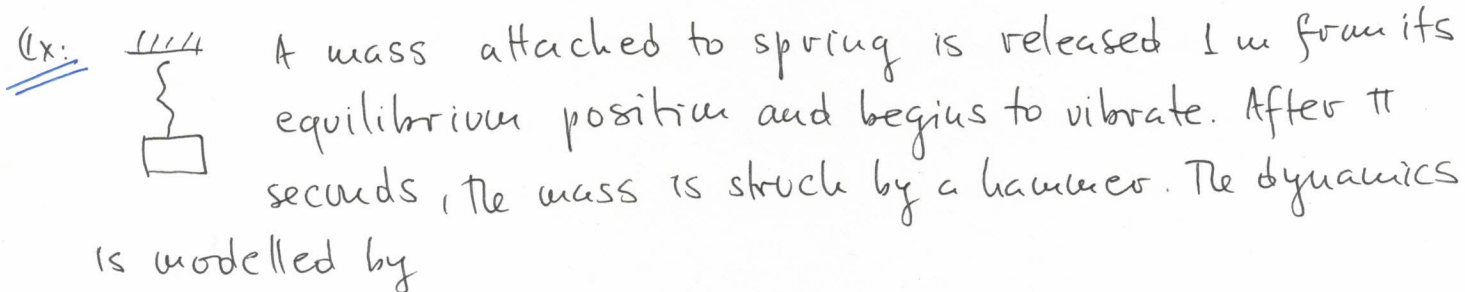 Ex: A mass attached to spring is released 1 m from its
equilibrium position and begins to vibrate. After π
seconds, the mass is struck by a hammer. The dynamics
is modelled by